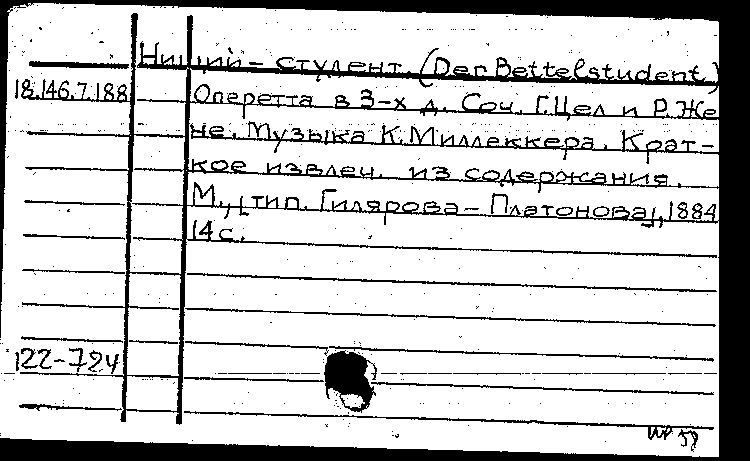 Нищий-студент. (Der Bettelstudent)
18.146.7.188 Оперетта в 3-х д. Соч. Г. Цел и Р. Же
не. Музыка К. Миллеккера. Крат-
кое извлеч. из содержания.
М., [тип. Гилярова-Платонова], 1884
14 с.
122-724